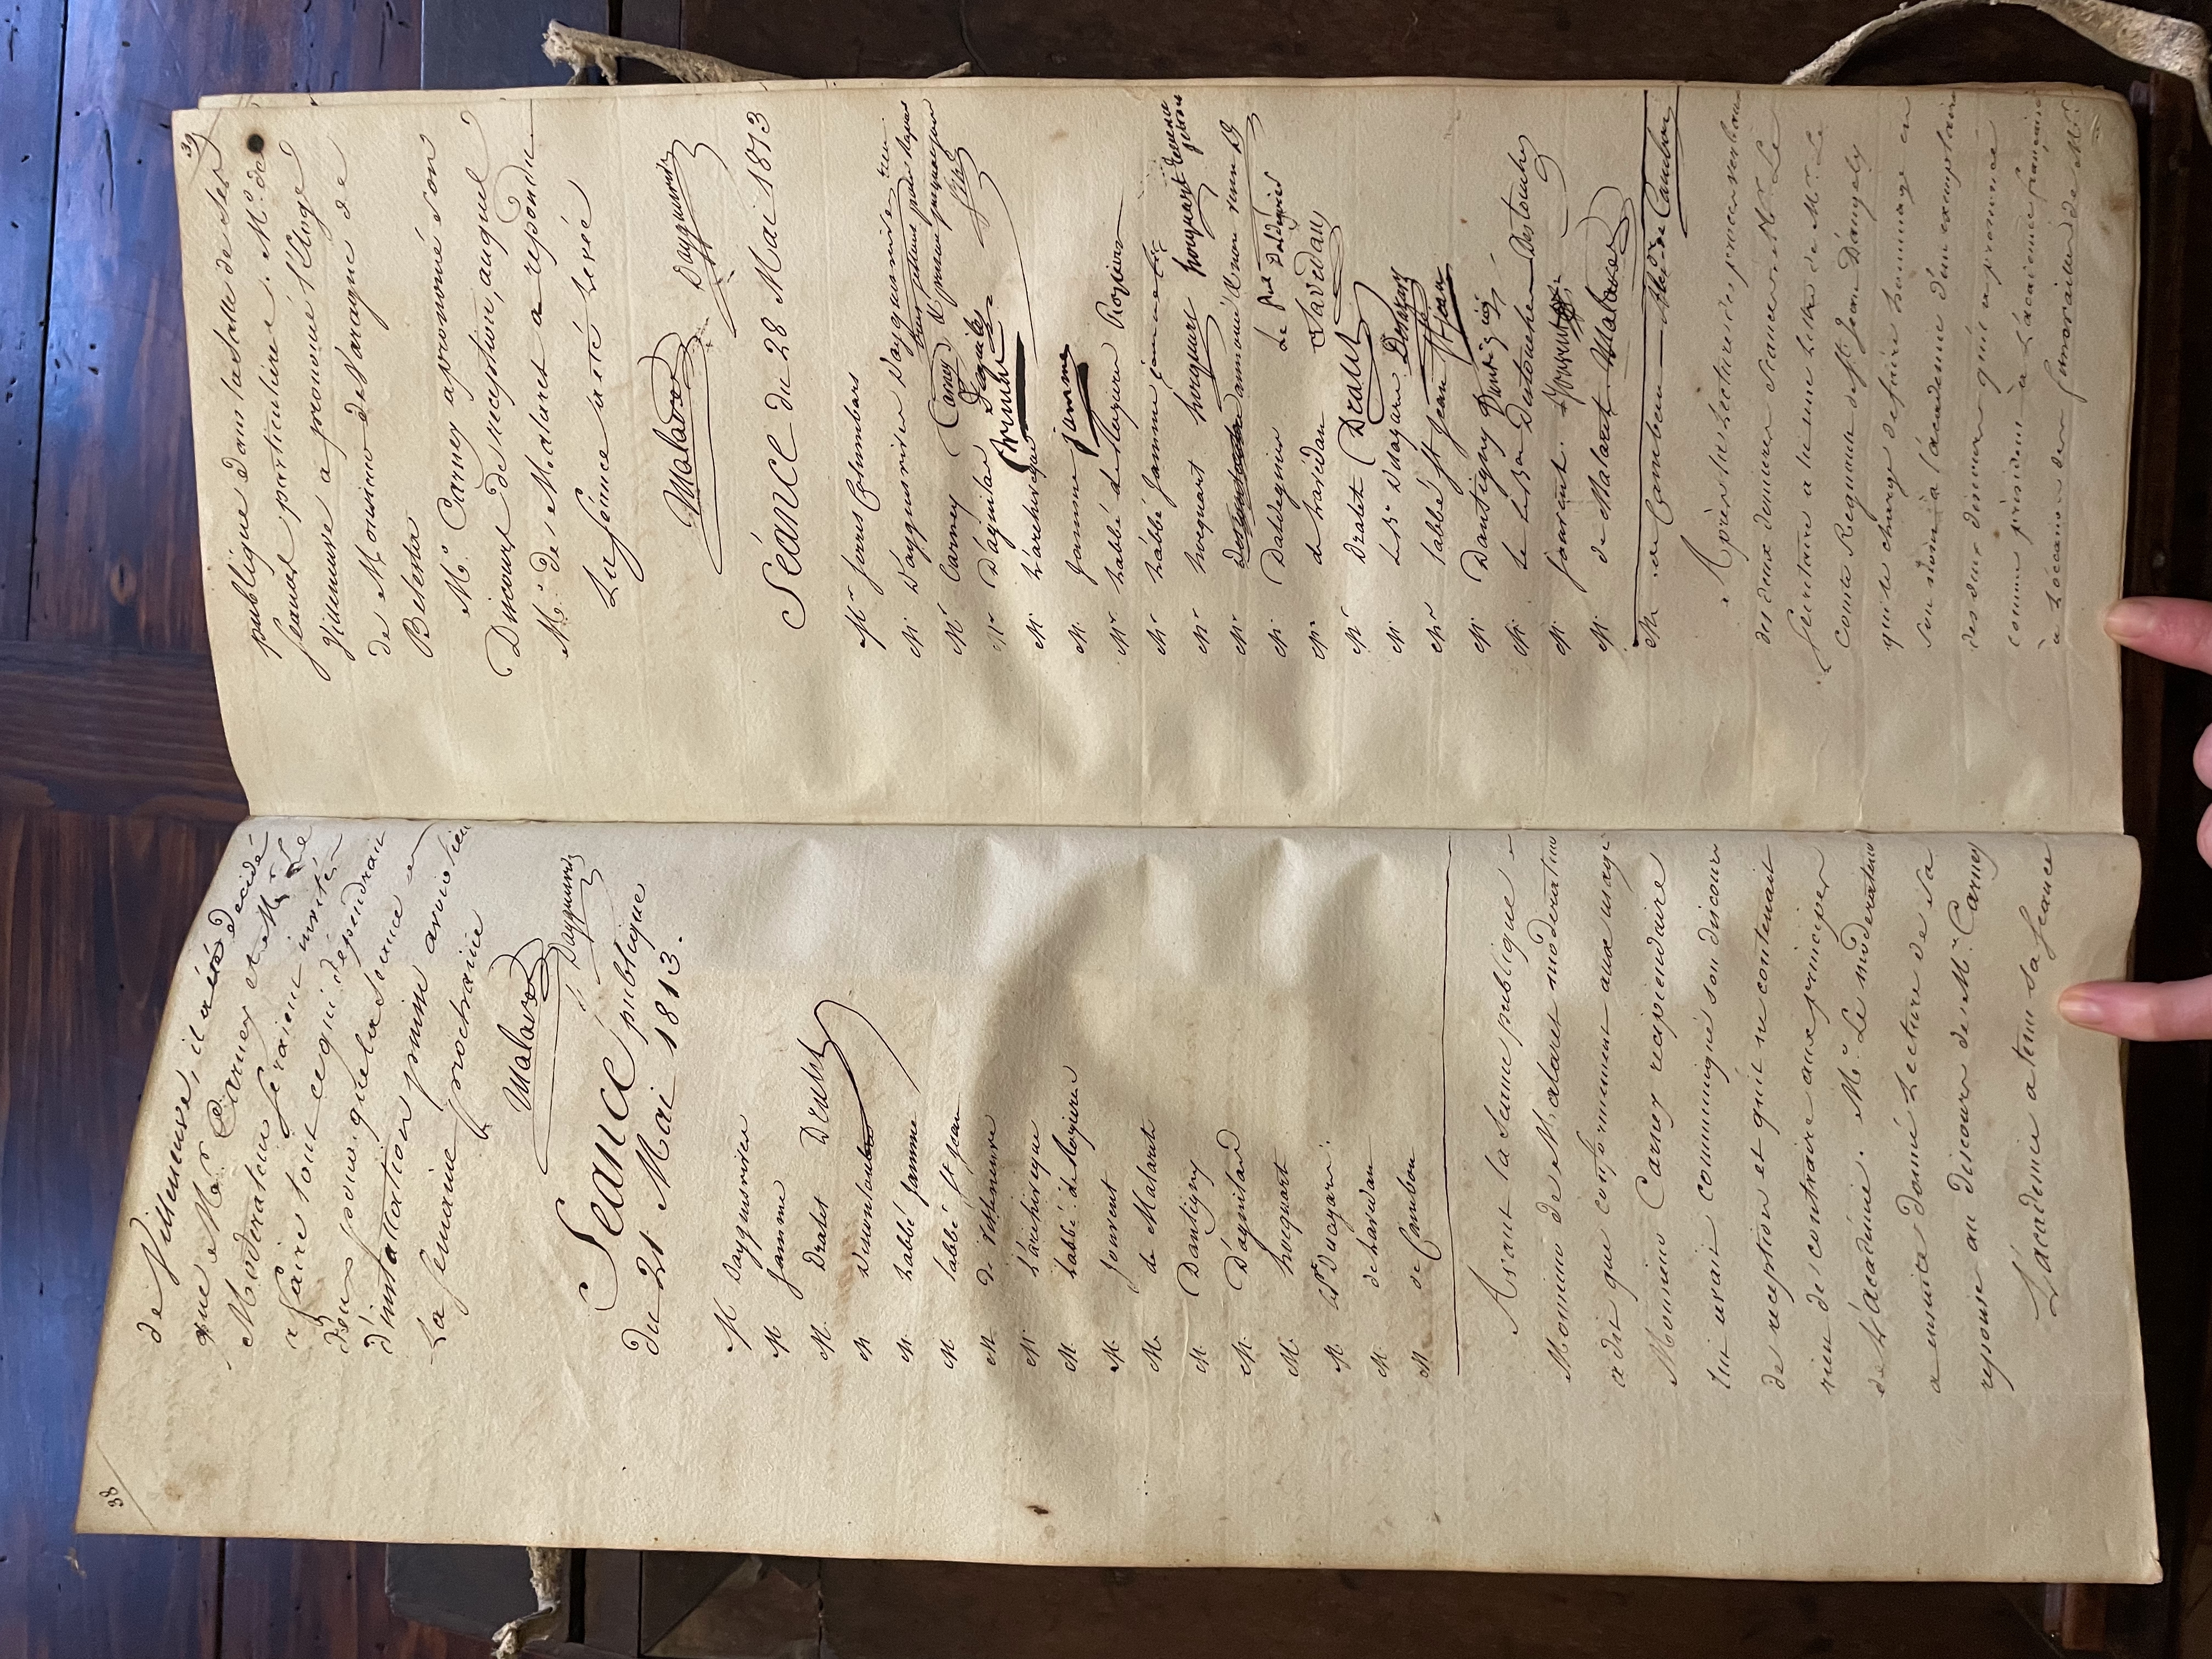 38
de Villeneuve, il a été décidé
que Mr. Carney et Mr. Le
Modérateur seraient invités
a faire tout ce qui dépendrait
deux pour que la séance
d'installation puisse avoir lieu
La semaine prochaine
Malaret Dayguesvives
Séance publique
du 21 Mai 1813.
M Dayguesvives
M. Jamme
M. Dralet Dralet
M.
M. L'abbé Jamme
M. L'abbé St Jean
M. de Villeneuve
M. L'archevêque
M. L'abbé de Rozieres
M. Jouvent
M. de Malaret
M. Dantigny
M. D'aguilard
M. hocquart
M.
M. de Lavedan
M. de Cambon
Avant la séance publique
Monsieur de Malaret modérateur
a dit que conformément aux usages
Monsieur Carney recipiendaire
lui avait communiqué son discours
de reception et qu'il ne contenait
rien de contraire aux principes
de L'académie. Mr. Le modérateur
a ensuite donné Lecture de sa
reponse au discours de Mr. Carney
L'academie a tenu sa seance
39
publique dans la salle de ses
seances particulieres. Mr. de
Villeneuve a prononcé l'éloge
de Monsieur de Varagne de
Belesta
Mr. Carney a prononcé son
Discours de reception, auquel
Mr. de Malaret a repondu
La séance a été Levée
Malaret Dayguesvives
Séance du 28 Mai 1813
Mr
M. Dayguesvives Dayguesvives
Mr Carney Carney
Mr D'aguilar Daguilar
M. L'archevêque
M. Jamme Jamme
Mr. L'abbé de Rozieres Rozieres
Mr L'abbé Jamme
Mr hocquart hocquart
Mr
M. Daldeguier
Mr. de Lavédan Lavedan
Mr Dralet Dralet
M.
Mr L'abbé St Jean St Jean
M. Dantigny
M. Le Bon Destouches Destouches
M. Jouvent.
M. de Malaret Malaret
M. de Cambon de Cambon
Après la Lecture des procès verbaux
des deux dernieres seances Mr Le
secretaire a lu une lettre de Mr. Le
Comte Regnault de St Jean D'angely
qui le charge de faire hommage en
son nom à l'académie d'un exemplaire
des deux discours qu'il a prononcé
comme président à L'académie française
à L'occasion des funerailles de Mr.